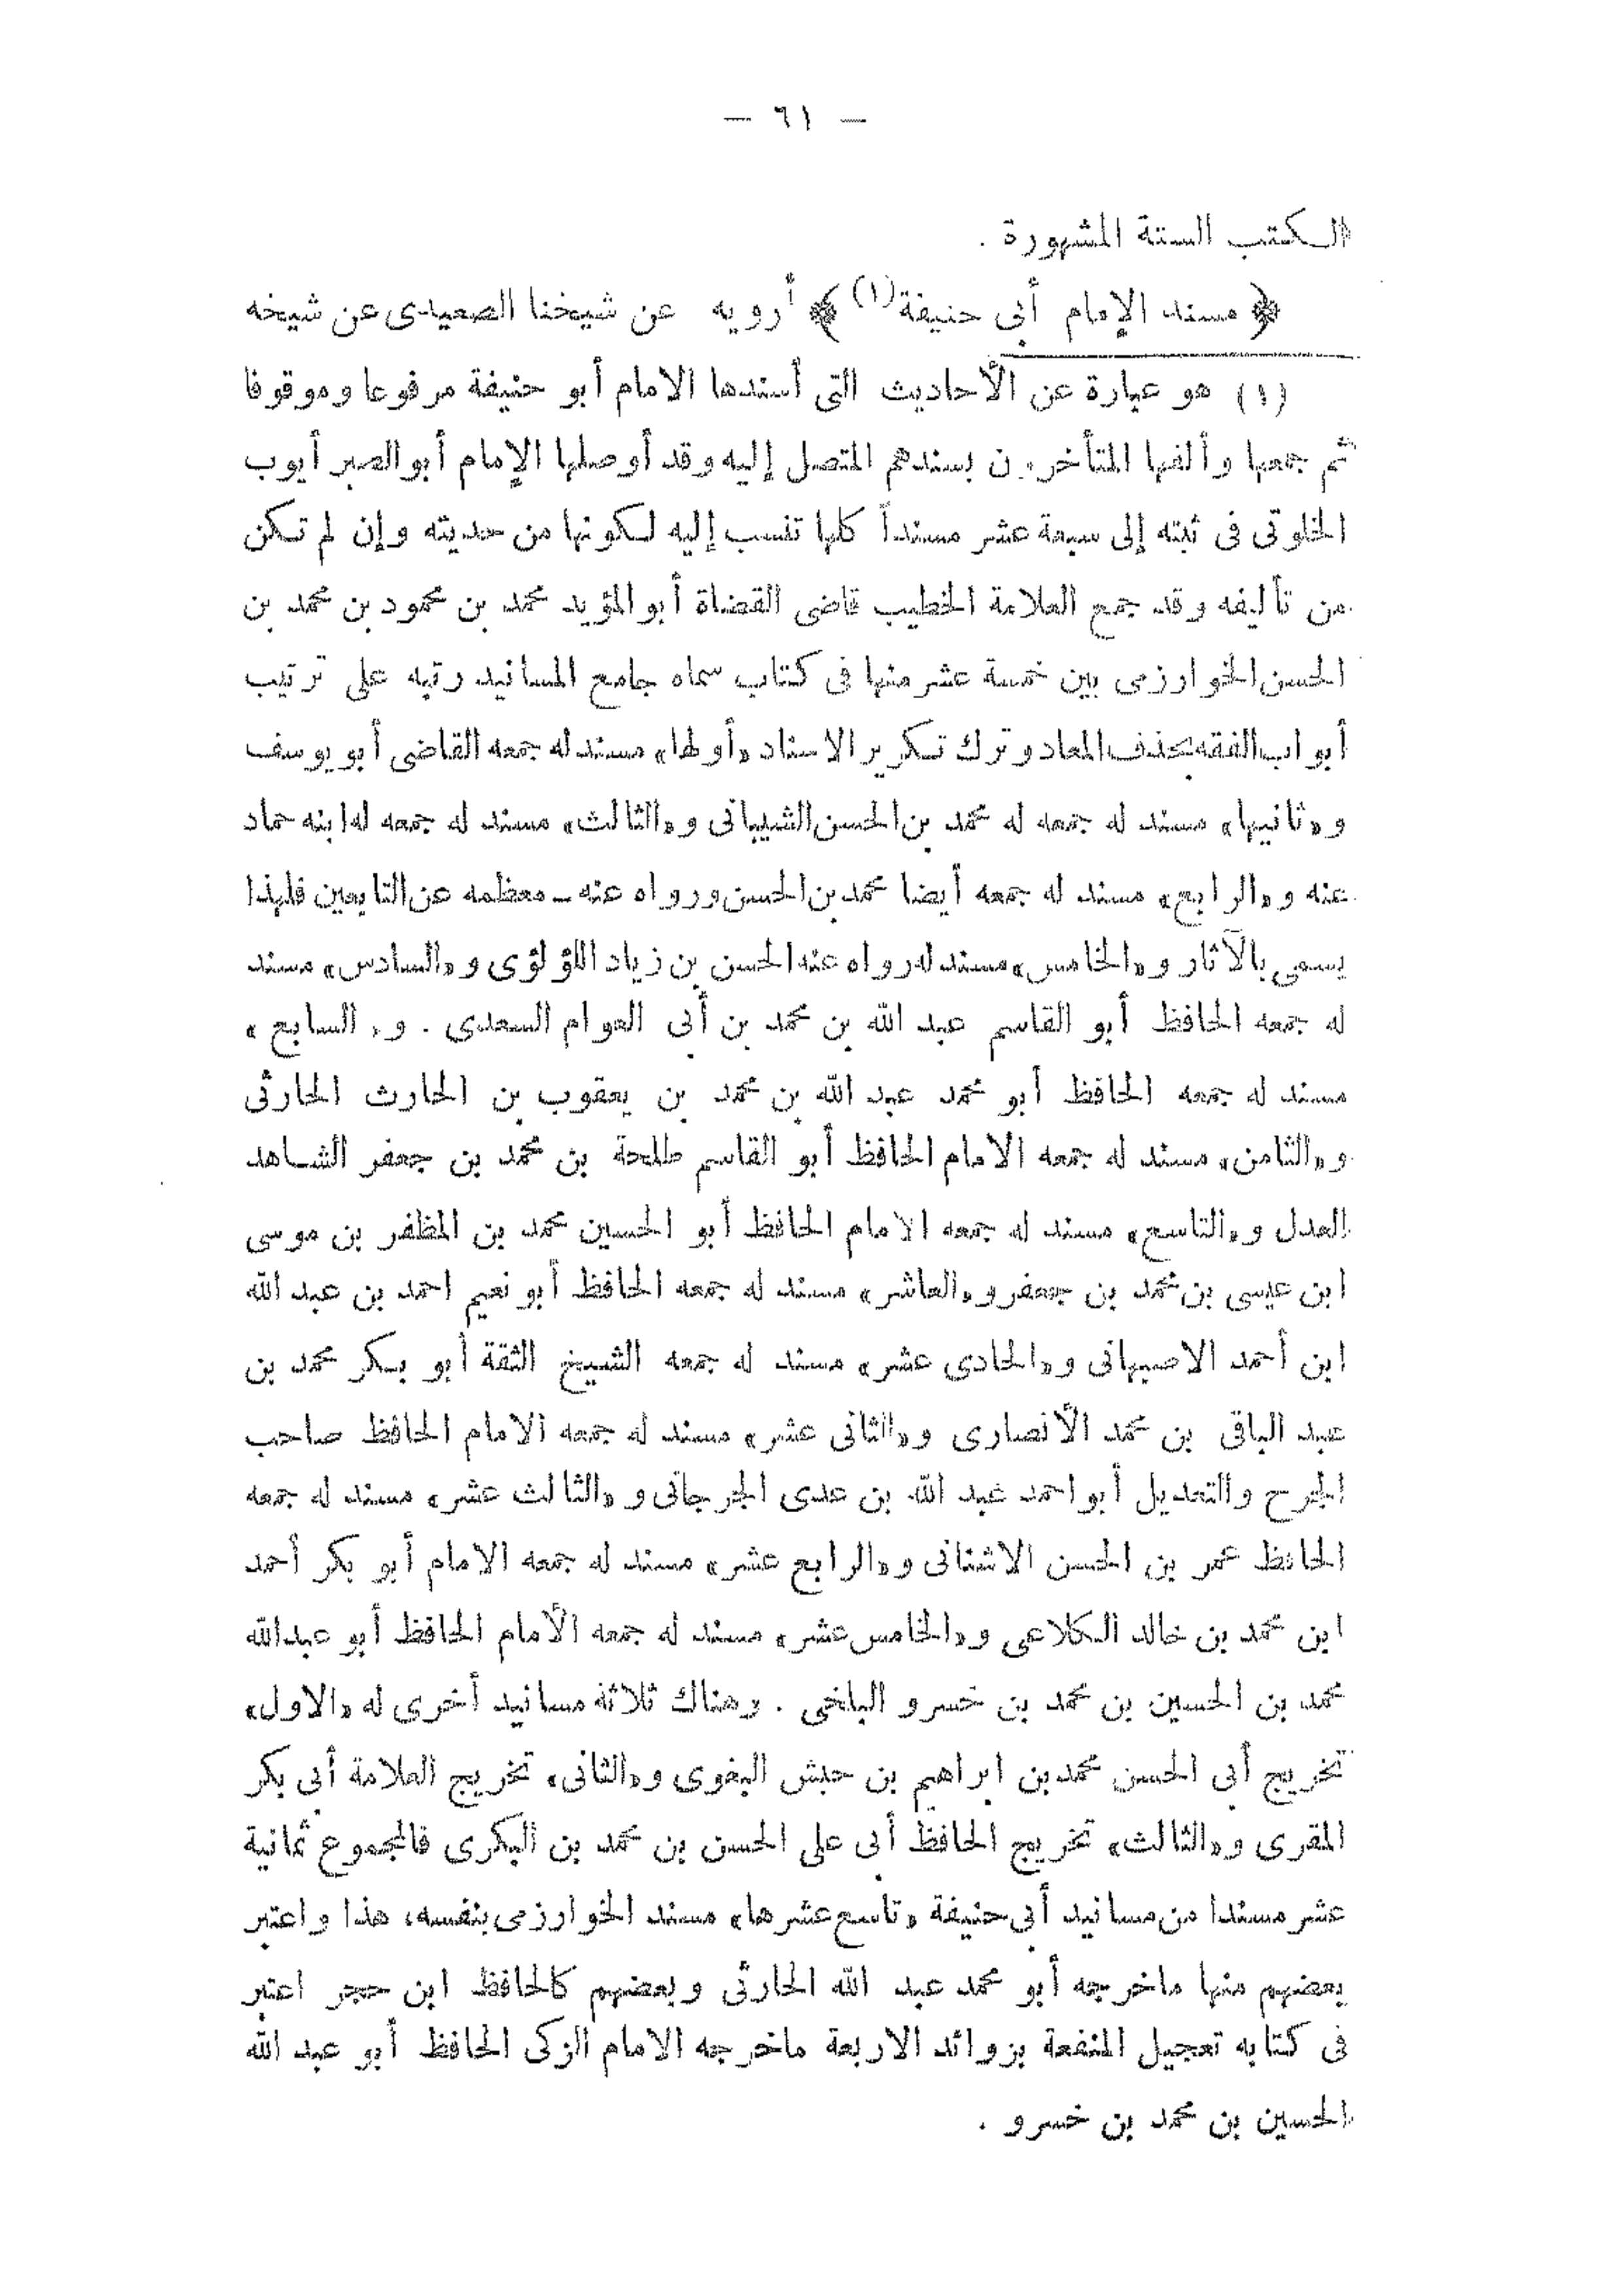 — ٦١ —
الكتب الستة المشهورة .
﴿ مسند الإمام أبى حنيفة(١) ﴾ أرويه عن شيخنا الصعيدى عن شيخه
(١) هو عبارة عن الأحاديث التى أسندها الامام أبو حنيفة مرفوعا وموقوفا
ثم جمعها وألفها المتأخرون بسندهم المتصل إليه وقد أوصلها الإمام أبو الصبر أيوب
الخلوتى فى ثبته إلى سبعة عشر مسنداً كلها تنسب إليه لكونها من حديثه وإن لم تكن
من تأليفه وقد جمع العلامة الخطيب قاضى القضاة أبو المؤيد محمد بن محمود بن محمد بن
الحسن الخوارزمى بين خمسة عشر منها فى كتاب سماه جامع المسانيد رتبه على ترتيب
أبواب الفقه بحذف المعاد وترك تكرير الاسناد «أولها» مسند له جمعه القاضى أبو يوسف
و«ثانيها» مسند له جمعه له محمد بن الحسن الشيبانى و«الثالث» مسند له جمعه له ابنه حماد
عنه و«الرابع» مسند له جمعه أيضا محمد بن الحسن ورواه عنه - معظمه عن التابعين فلهذا
يسمى بالآثار و«الخامس» مسند له رواه عنه الحسن بن زياد اللؤلؤى و«السادس» مسند
له جمعه الحافظ أبو القاسم عبد الله بن محمد بن أبى العوام السعدى . و« السابع »
مسند له جمعه الحافظ أبو محمد عبد الله بن محمد بن يعقوب بن الحارث الحارثى
و«الثامن» مسند له جمعه الامام الحافظ أبو القاسم طلحة بن محمد بن جعفر الشاهد
العدل و«التاسع» مسند له جمعه الامام الحافظ أبو الحسين محمد بن المظفر بن موسى
ابن عيسى بن محمد بن جعفر و«العاشر» مسند له جمعه الحافظ أبو نعيم احمد بن عبد الله
ابن أحمد الاصبهانى و«الحادى عشر» مسند له جمعه الشيخ الثقة أبو بكر محمد بن
عبد الباقى بن محمد الأنصارى و«الثانى عشر» مسند له جمعه الامام الحافظ صاحب
الجرح والتعديل أبو احمد عبد الله بن عدى الجرجانى و«الثالث عشر» مسند له جمعه
الحافظ عمر بن الحسن الاشنانى و«الرابع عشر» مسند له جمعه الامام أبو بكر أحمد
ابن محمد بن خالد الكلاعى و«الخامس عشر» مسند له جمعه الأمام الحافظ أبو عبدالله
محمد بن الحسين بن محمد بن خسرو البلخى . وهناك ثلاثة مسانيد أخرى له «الاول»
تخريج أبى الحسن محمد بن ابراهيم بن حبش البغوى و«الثانى» تخريج العلامة أبى بكر
المقرى و«الثالث» تخريج الحافظ أبى على الحسن بن محمد بن البكرى فالمجموع ثمانية
عشر مسندا من مسانيد أبى حنيفة «تاسع عشرها» مسند الخوارزمى بنفسه، هذا واعتبر
بعضهم منها ماخرجه أبو محمد عبد الله الحارثى وبعضهم كالحافظ ابن حجر اعتبر
فى كتابه تعجيل المنفعة بزوائد الاربعة ماخرجه الامام الزكى الحافظ أبو عبد الله
الحسين بن محمد بن خسرو .